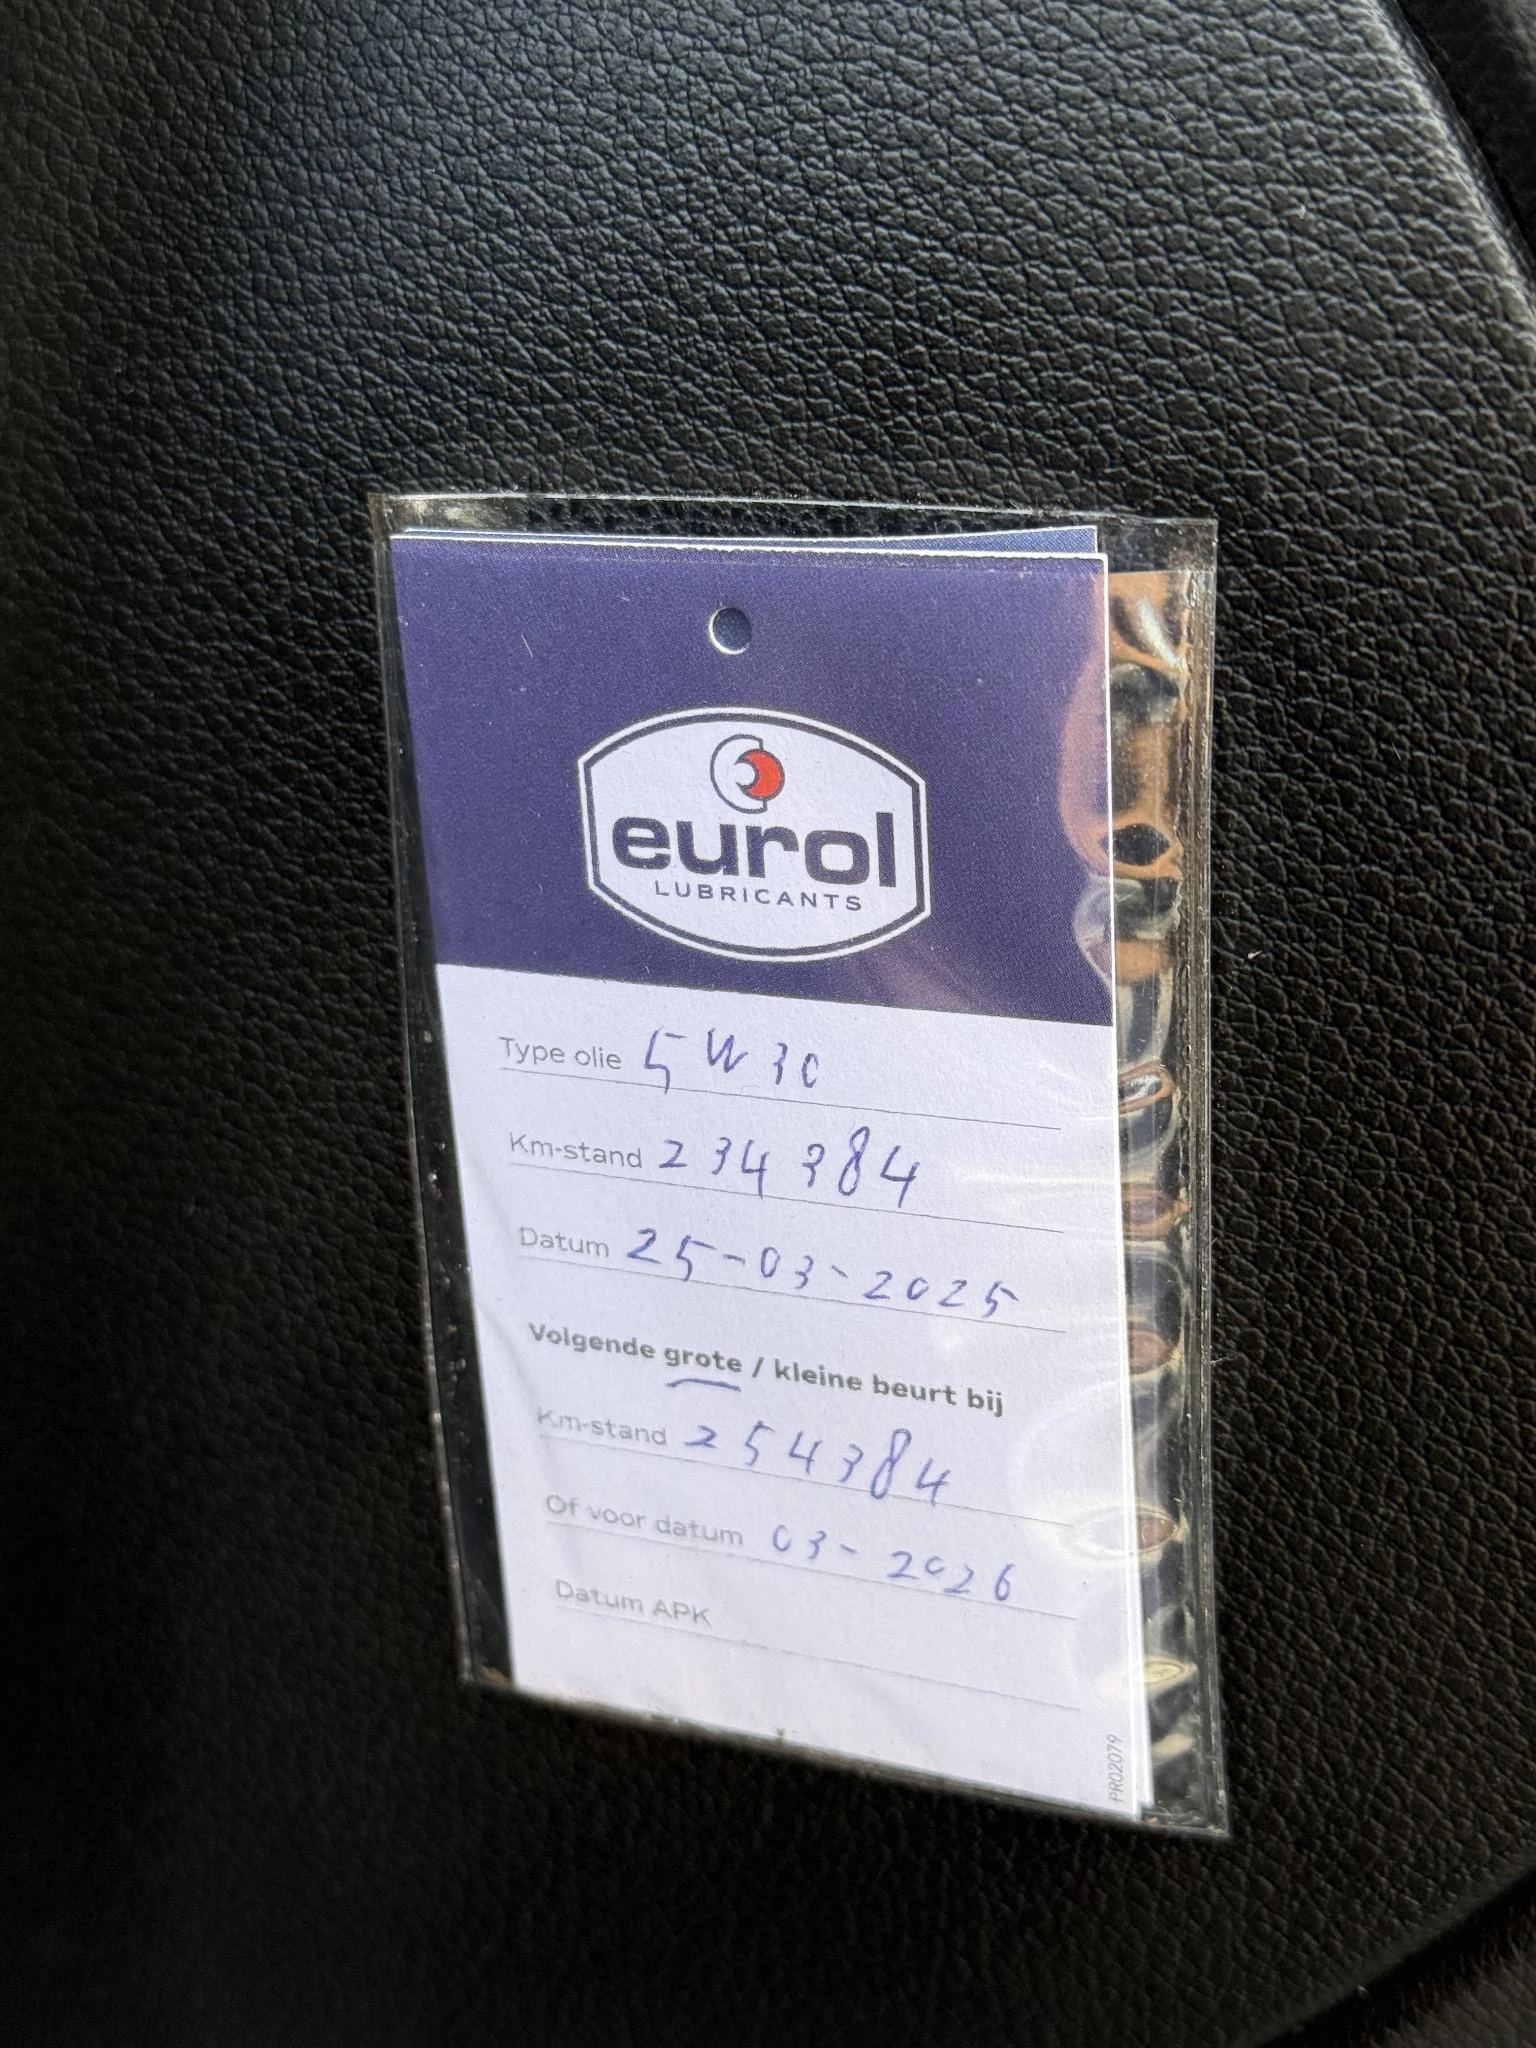 eurol
LUBRICANTS
Type olie 5W30
Km-stand 234384
Datum 25-03-2025
Volgende grote / kleine beurt bij
Km-stand 254384
Of voor datum 03-2026
Datum APK
PR02079